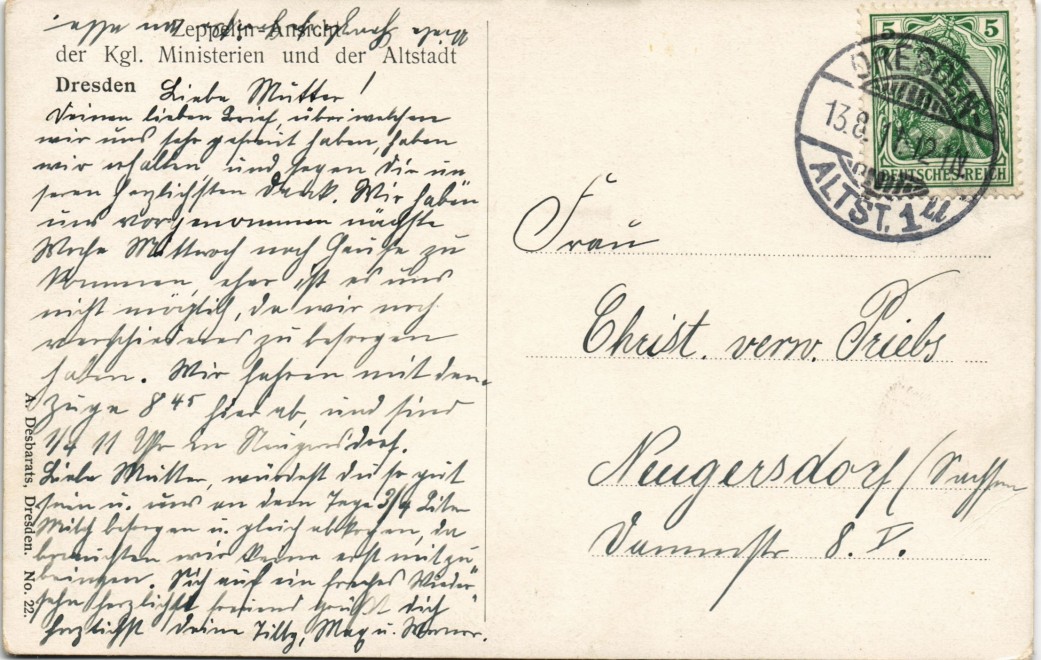 Zeppelin-Ansicht
der Kgl. Ministerien und der Altstadt
Dresden
Liebe Mutter!
Deinen lieben Brief, über welchen
wir uns sehr gefreut haben, haben
wir erhalten, und sagen Dir un
seren herzlichsten Dank. Wir haben
uns vorgenommen nächste
Woche Mittwoch nach Hause zu
kommen, eher ist es uns
nicht möglich, da wir noch
verschiedenes zu besorgen
haben. Wir fahren mit dem
Zuge 8 45 hier ab, und sind
1/4 11 Uhr in Neugersdorf.
Liebe Mutter, würdest du so gut
sein u. uns an dem Tage 3/4 Liter
Milch besorgen u. gleich abkochen, da
brauchten wir keine erst mitzu
bringen. Sich auf ein frohes Wieder"
sehn herzlichst freuend grüßt dich
herzlichst Deine Tilly, Max u. Werner.
A. Desbarats, Dresden. No. 22.
5 5
DEUTSCHES REICH
DRESDEN-
13.8.
ALTST. 1
Frau
Christ. verw. Priebs
Neugersdorf (Sachsen
Dammstr 8. I.